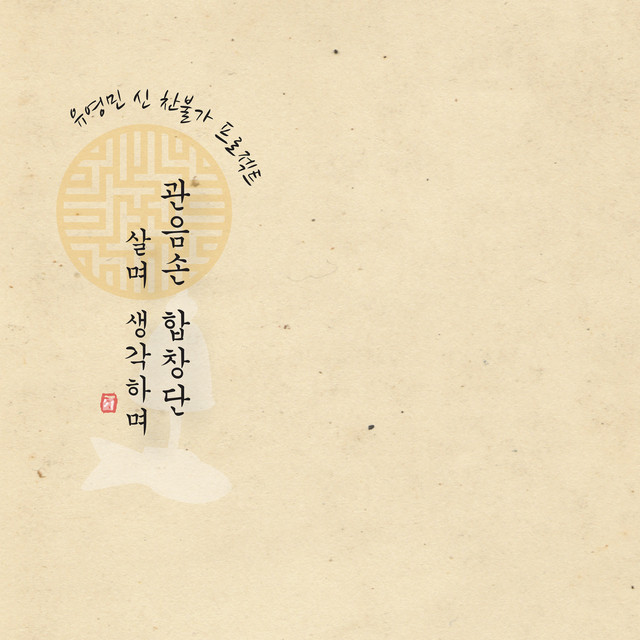 유영민 신 찬불가 프로젝트
관음손 합창단
살며 생각하며